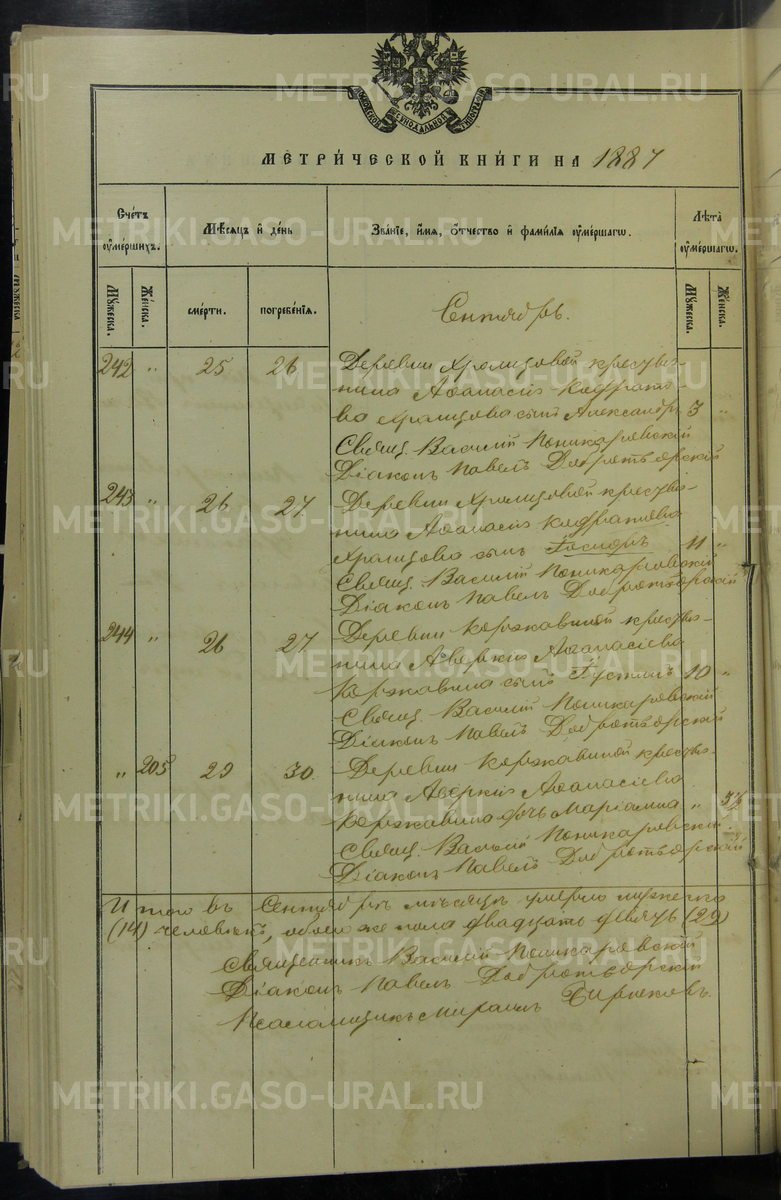 МЕТРИ́ЧЕСКОЙ КНИ́ГИ НА 1887
Сче́тъ ᲂу҆ме́ршихъ.
Мѣ́сяцъ и҆ де́нь
Зва́нїе, и҆́мя, ѻ҆́тчество и҆ фами́лїя ᲂу҆ме́ршагѡ.
Лѣ́та ᲂу҆ме́ршагѡ.
Мꙋ́жеска.
Же́нска.
сме́рти.
погребе́нїя.
Мꙋ́жеска.
Же́нска.
Сентябрь.
242 " 25 26 Деревни Храмцовой крестья-
нина Аѳанасія
ва Храмцова сынъ Александръ 3 "
Свящ. Василій Поникаровскій
Діаконъ Павелъ Добротворскій
243 " 26 27 Деревни Храмцовой крестья-
нина Аѳанасія
Храмцова сынъ 11 "
Свящ. Василій Поникаровскій
Діаконъ Павелъ Добротворскій
244 " 26 27 Деревни Коржавиной крестья-
нина Аверкія Аѳанасіева
Коржавина сынъ Густинъ 10 "
Свящ. Василій Поникаровскій
Діаконъ Павелъ Добротворскій
" 205 29 30. Деревни Коржавиной крестья-
нина Аверкія Аѳанасіева
Коржавина дочь Маріамна "
Свящ. Василій Поникаровскій
Діаконъ Павелъ Добротворскій
Итого въ Сентябрѣ мѣсяцѣ умерло мужеска
(14) человѣкъ, обоего же пола двадцать девять (29)
Священникъ Василій Поникаровскій
Діаконъ Павелъ Добротворскій
Псаломщикъ
METRIKI.GASO-URAL.RU